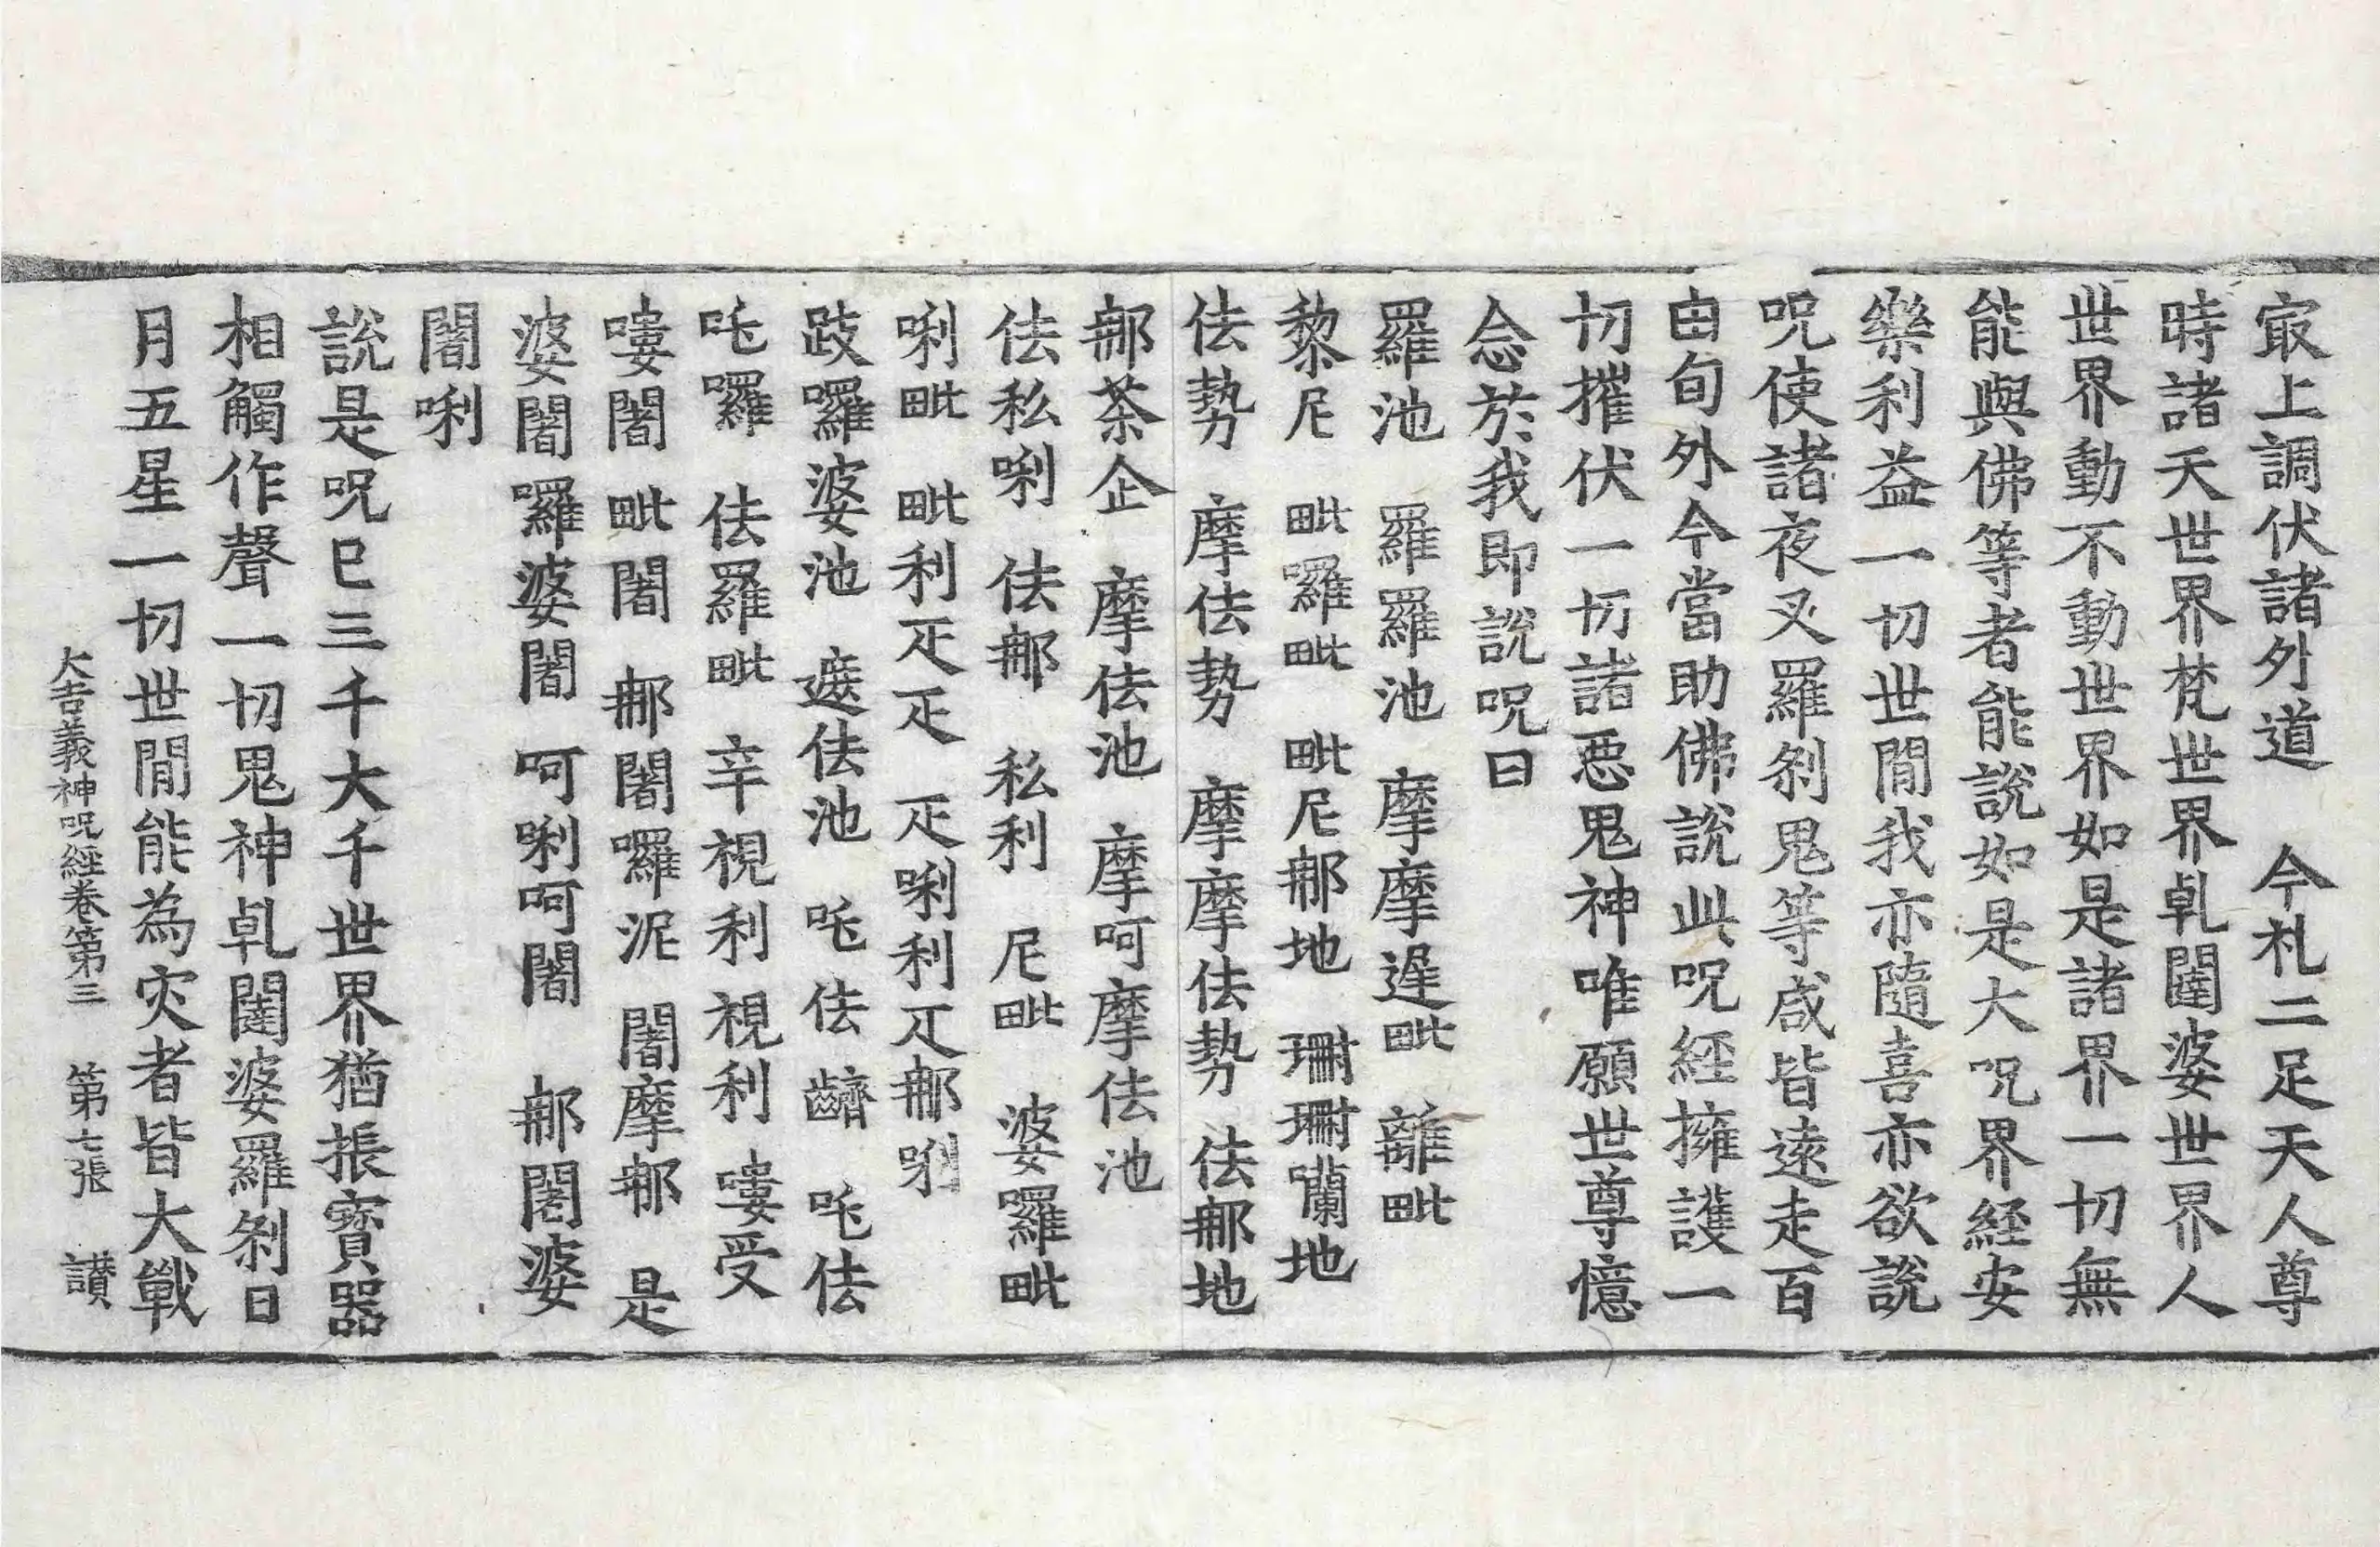 冣上調伏諸外道　今礼二足天人尊
時諸天世界梵世界乹闥婆世界人
世界動不動世界如是諸界一切無
能與佛等者能說如是大呪界經安
樂利益一切世閒我亦隨喜亦欲說
呪使諸夜叉羅刹鬼等咸皆遠走百
由旬外今當助佛說此呪經擁護一
切摧伏一切諸惡鬼神唯願世尊憶
念於我即說呪曰
羅池　羅羅池　摩摩遟毗　離毗
黎尼　毗囉毗　毗尼那地　珊珊囒地
佉勢　摩佉勢　摩摩佉勢　佉那地
那茶企　摩佉池　摩呵摩佉池
佉私唎　佉那　私利　尼毗　婆羅毗
唎毗　毗利疋疋　疋唎利疋那唎
跂囉婆池　遮佉池　吒佉齹　吒佉
吒囉　佉羅毗　辛視利視利　嘍受
嘍闍　毗闍　那闍囉泥　闍摩那　是
婆闍囉婆闍　呵唎呵闍　那闍婆
闍唎
說是呪已三千大千世界猶振寶器
相觸作聲一切鬼神乹闥婆羅刹日
月五星一切世閒能為灾者皆大戰
大吉義神呪經卷第三　第七張　讃